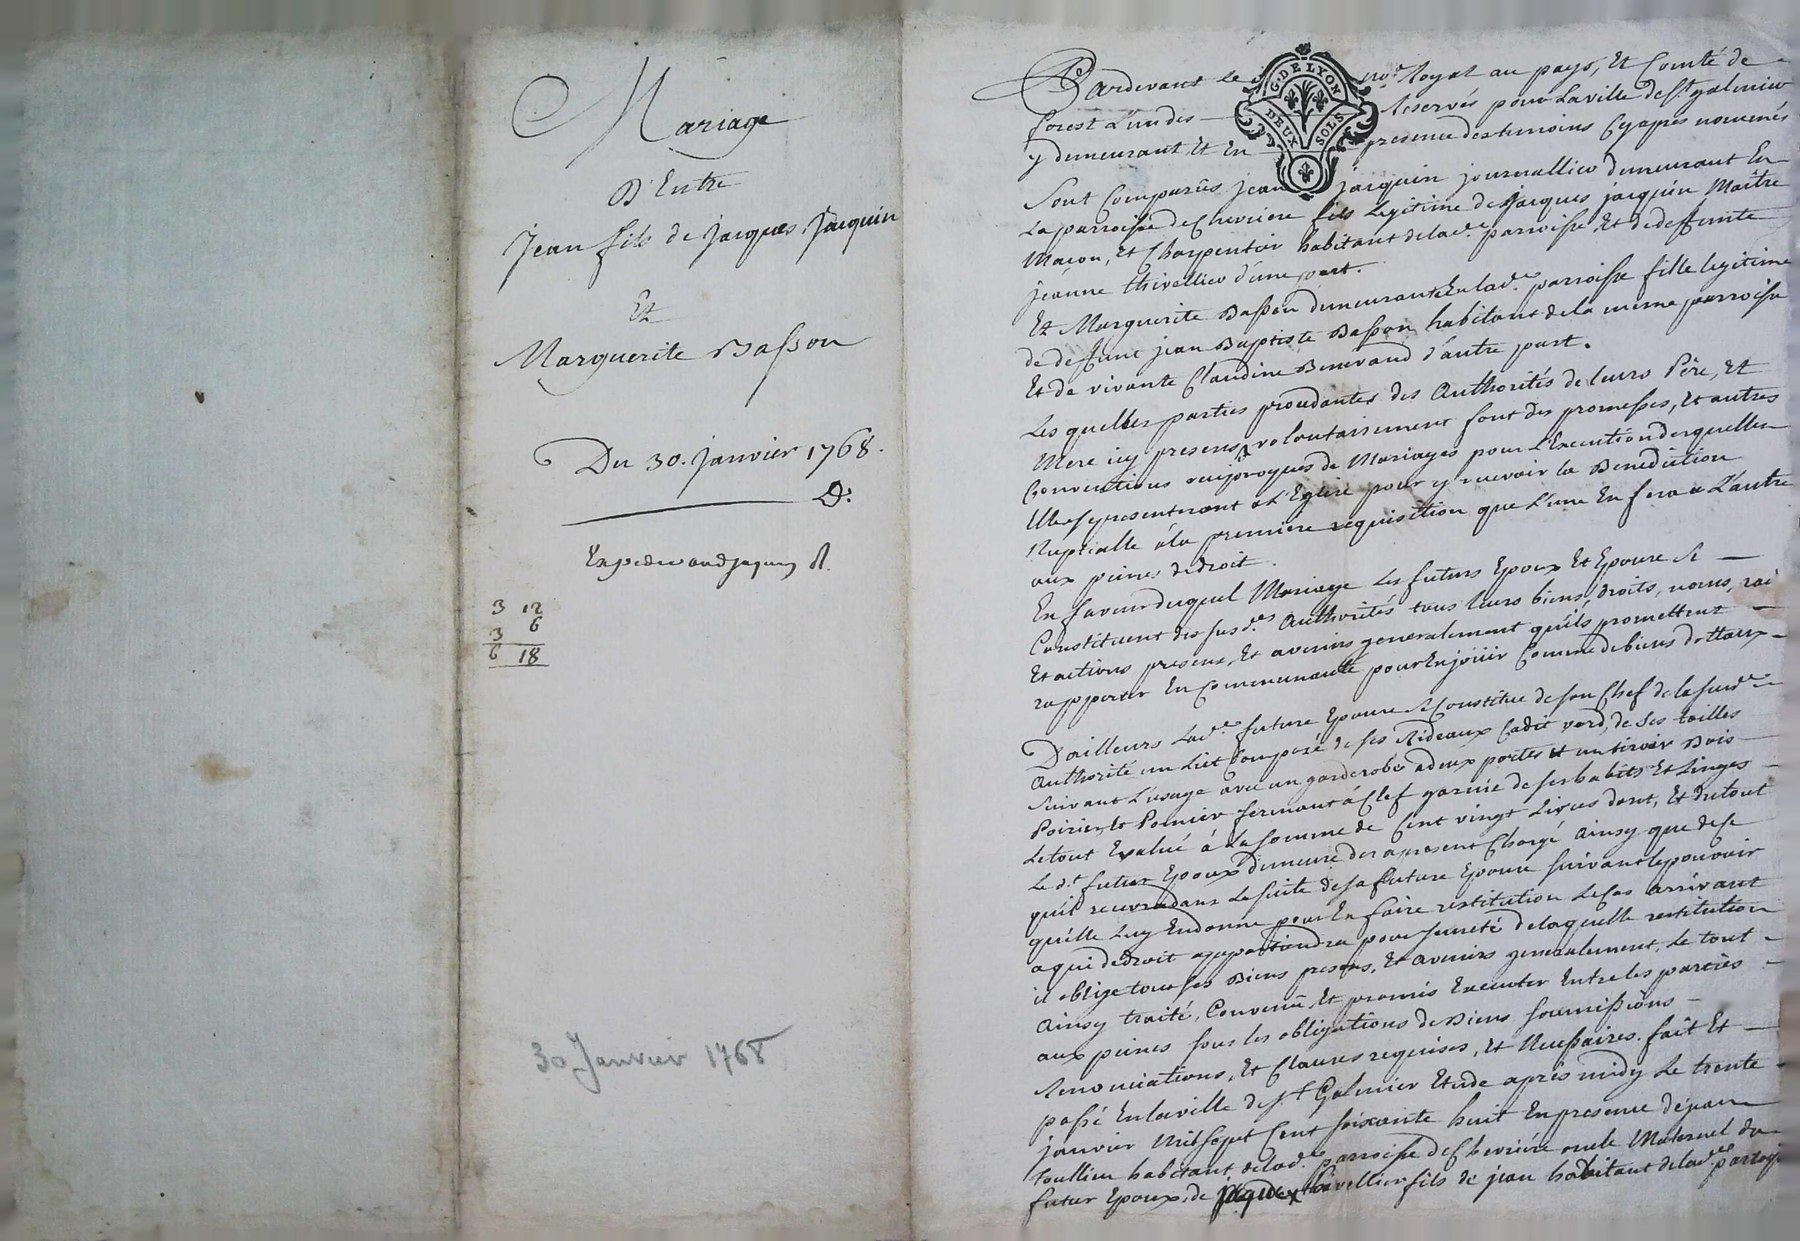 Mariage
D'Entre
Jean fils de jacques Jacquin
Et
Marguerite Basson
Du 30. janvier 1768.
3 12
3 6
6 18
30 Janvier 1768
G. DE LYON
DEUX SOLS
Pardevant Le no.re Royal au pays, Et Comté de
forest L'un des Reservés pour La ville de St. galmier
y demeurant Et En presence des temoins Cyaprès nommés
Sont Comparûs jean jacquin journallier demeurant En
La parroisse de Chevriere fils Legitime de jacques jacquin Maître
Maçon, Et Charpentier habitant de lad.e parroisse Et de deffunte
jeanne thivellier d'une part.
Et Marguerite Basson demeurante En lad.e parroisse fille legitime
de deffunt jean Baptiste Basson habitant de la meme parroisse
Et de vivante Claudine Benevand d'autre part.
Les quelles parties procedantes des Authorités de leurs Père, Et
Mere icy presens, volontairement font des promesses, Et autres
Conventions reciproques de Mariages pour L'Execution desquelles
Elles se presenteront à L'Eglise pour y recevoir la Benediction
Nuptialle à la première requisition que L'une En fera a L'autre
aux peines de droit.
En faveur duquel Mariage Les futurs Epoux Et Epouse Se
Constituent des susd.es Authorités tous leurs biens, droits, noms, rai
Et actions presens, Et avenirs generalement qu'ils promettent
rapporter En Communauté pour En joüir Comme de biens dottaux
D'ailleurs Lad.e future Epouse se Constitue de son Chef de la susd.e
authorité un Lict Composé de ses Rideaux Cadit verd, de ses tailles
suivant L'usage avec un garderobes a deux portes et un tiroir Bois
Poirier, Et Pomier fermant à Clef garnie de ses habits Et Linges
Le tout Evalué à La somme de Cent vingt Livres dont, Et du tout
Le d.t futur Epoux demeure des apresent Chargé Ainsy que de ce
qu'il recevra dans La suite de sa future Epouse suivant le pouvoir
qu'elle Luy En donne pour En faire restitution Le Cas arrivant
a qui de droit appartiendra pour sureté de laquelle restitution
il oblige tous ses Biens presens, Et avenirs generalement. Le tout
Ainsy traité, Convenû, Et promis Executer Entre les parties
aux peines sous les obligations de Biens soumissions
Renonciations, Et Clauses requises, Et Necessaires. fait Et
passé En la ville de St. Galmier Etude après midy Le trente
janvier Mil sept Cent soixante huit En presence de jean
toullieu habitant de lad.e parroisse de Chevrière oncle Maternel du
futur Epoux, de jacques thivellier fils de jean habitant de lad.e parroisse